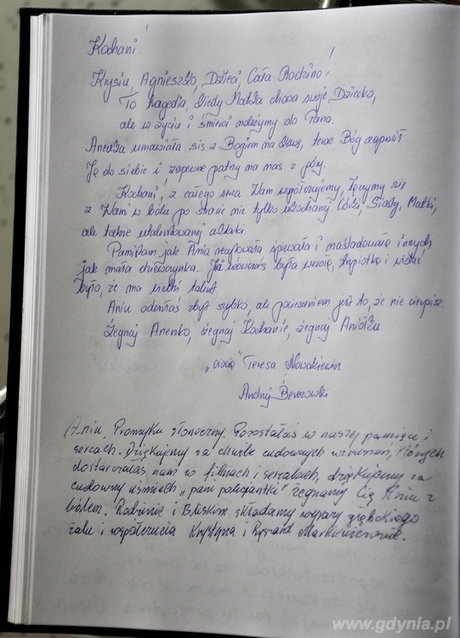 Kochani!
Krysiu, Agnieszko, Dzieci, Cała Rodzino!
To tragedia, kiedy Matka chowa swoje Dziecko,
ale w życiu i śmierci należymy do Pana.
umawiała się z Bogiem na teraz Bóg zaprosił
Ją do siebie i zapewne patrzy na nas z góry.
Kochani, z całego serca Wam współczujemy, łączymy się
z Wami w bólu po stracie nie tylko ukochanej Córki, Siostry, Matki,
ale także utalentowanej aktorki.
Pamiętam jak Ania recytowała śpiewała i naśladowała innych
jak mała dziewczynka. Już wówczas była i widać
było, że ma wielki talent.
Aniu odeszłaś zbyt szybko, ale pocieszeniem jest to, że nie cierpisz.
Żegnaj Anenko, żegnaj Kochanie, żegnaj Aniołku
Teresa
Andrzej
Aniu, Promyku słoneczny. Pozostałaś w naszej pamięci i
sercach. Dziękujemy za chwile cudownych wzruszeń, których
dostarczałaś nam w filmach i serialach, dziękujemy za
cudowny uśmiech „pani policjantki" żegnamy Cię Aniu z
bólem. Rodzinie i Bliskim składamy wyrazy głębokiego
żalu i współczucia Krystyna i Ryszard
www.gdynia.pl